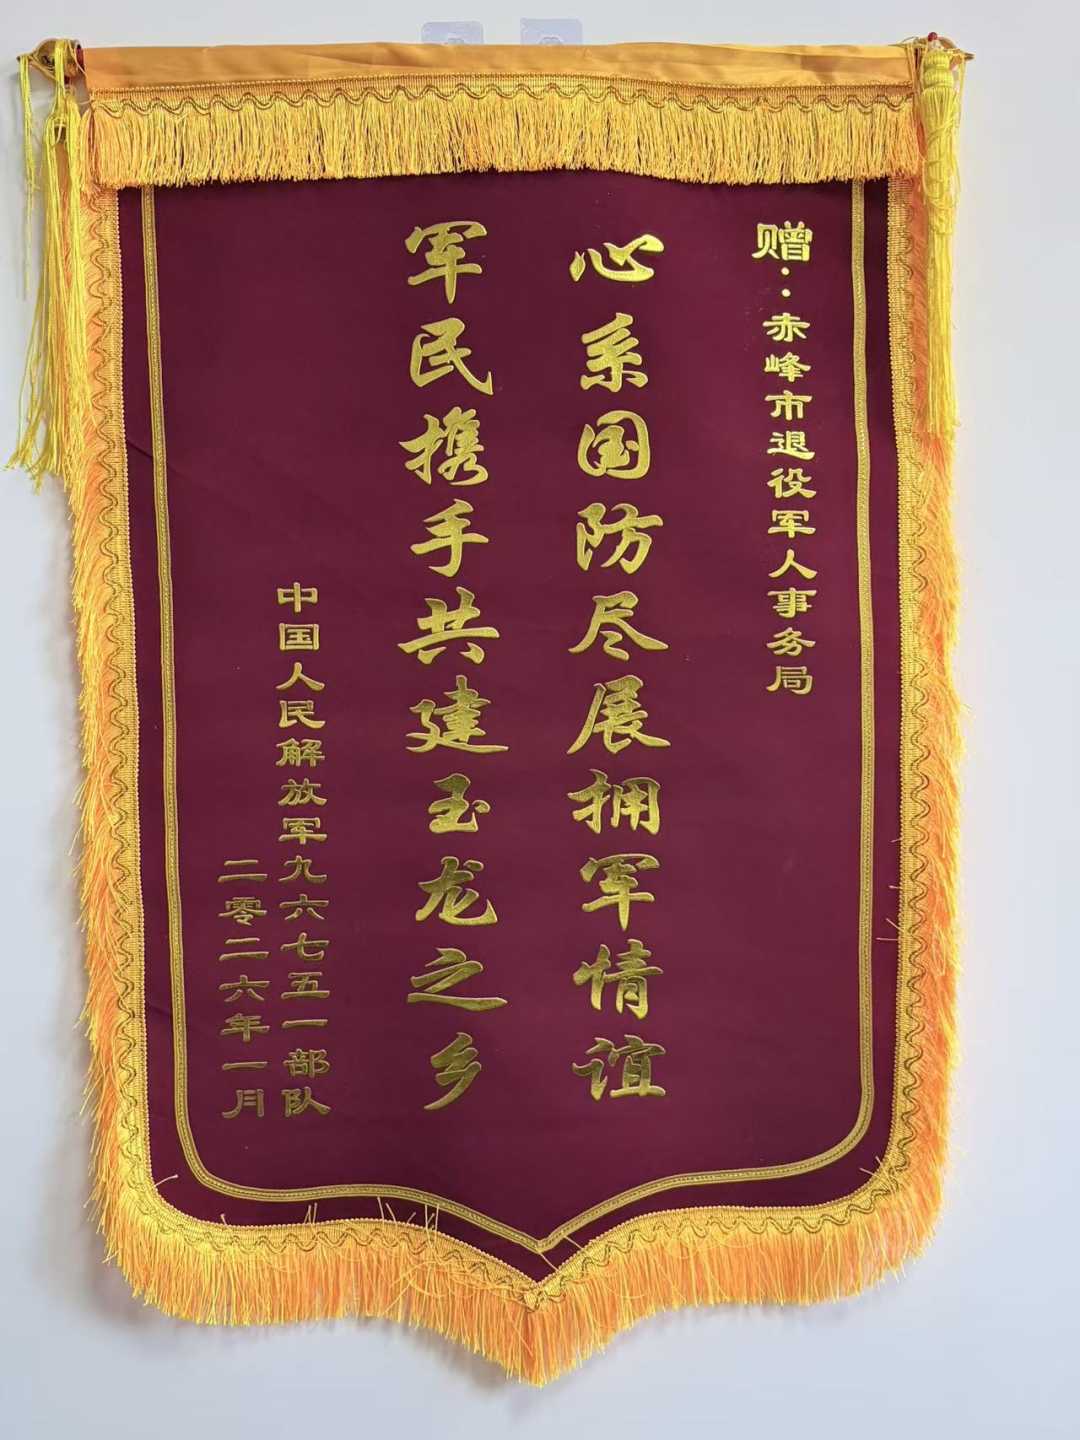 赠：赤峰市退役军人事务局
心系国防尽展拥军情谊
军民携手共建玉龙之乡
中国人民解放军九六七五一部队
二零二六年一月